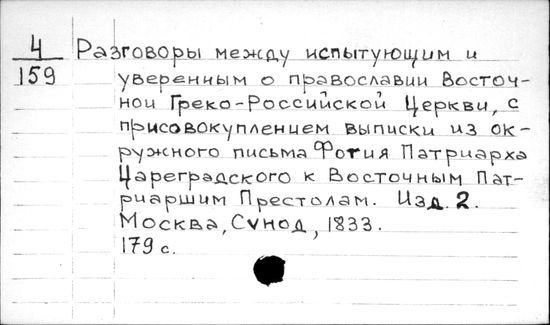 4 Разговоры между испытующим и
159 уверенным о православии Восточ-
ной Греко-Российской Церкви, с
присовокуплением выписки из ок-
ружного письма Фотия Патриарха
Цареградского к Восточным Пат-
риаршим Престолам. Изд. 2.
Москва, Сѵнод, 1833.
179 с.